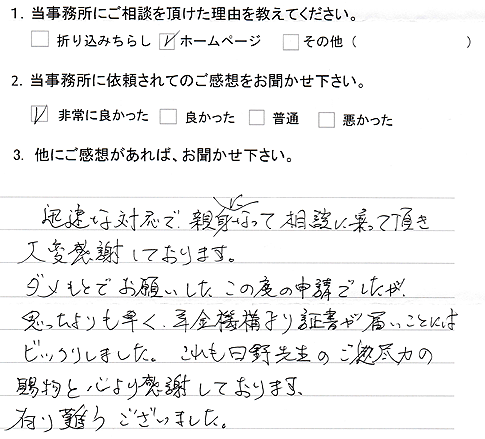 1. 当事務所にご相談を頂けた理由を教えてください。
□ 折り込みちらし ☑ ホームページ □ その他（ ）
2. 当事務所に依頼されてのご感想をお聞かせ下さい。
☑ 非常に良かった □ 良かった □ 普通 □ 悪かった
3. 他にご感想があれば、お聞かせ下さい。
迅速な対応で、親身になって相談に乗って頂き
大変感謝しております。
ダメもとでお願いした、この度の申請でしたが、
思ったよりも早く、年金機構より証書が届いことには
ビックリしました。これも日野先生のご尽力の
賜物と心より感謝しております、
有り難うございました。